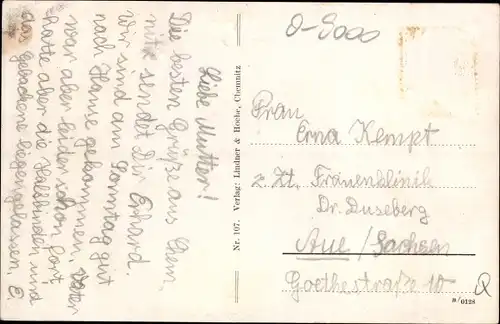 Liebe Mutter!
Die besten Grüße aus Chem-
nitz sendet Dir Erhard.
Wir sind am Sonntag gut
nach Hause gekommen. Vater
war aber leider schon fort,
hatte aber die Halsbinden und
das gebackene liegengelassen. E.
Nr. 107. Verlag: Lindner & Hoche, Chemnitz
0-8000
Frau
Erna Kempt
z. Zt. Frauenklinik
Dr. Duseberg
Aue / Sachsen
Goethestraße 10
0128